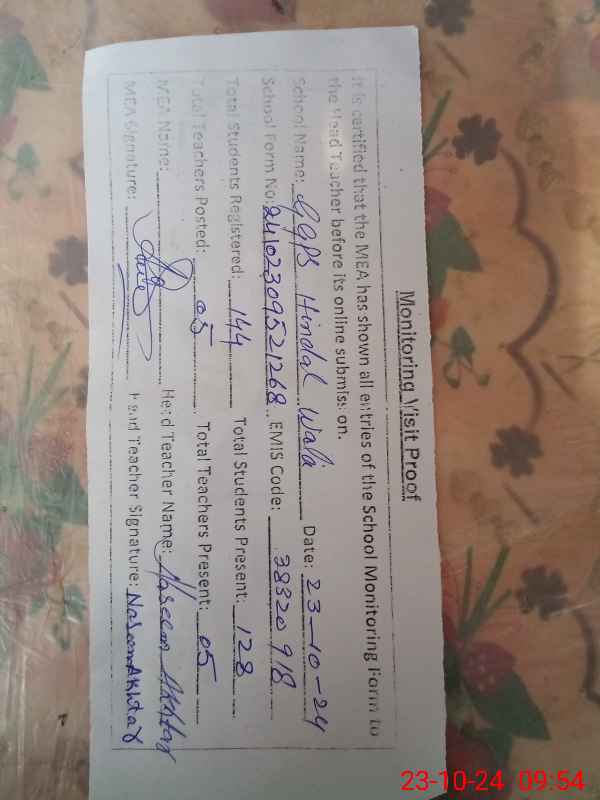 Monitoring Visit Proof
It is certified that the MEA has shown all entries of the School Monitoring Form to
the Head Teacher before its online submission.
School Name: GGPS Hindal Wala Date: 23-10-24
School Form No: 24102309521268 EMIS Code: 38320918
Total Students Registered: 144 Total Students Present: 128
Total Teachers Posted: 05 Total Teachers Present: 05
MEA Name: Head Teacher Name: Naseem Akhtar
MEA Signature: Head Teacher Signature: Naseem Akhtar
23-10-24 09:54